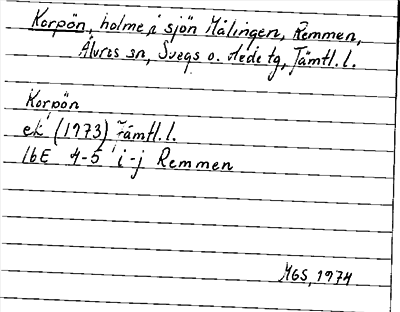 Korpön, holme i sjön Målingen, Remmen,
Älvros sn, Svegs o. Hede tg, Jämtl. l.
Korpön
ek (1973) Jämtl. l.
16E 4-5 i-j Remmen
MGS, 1974